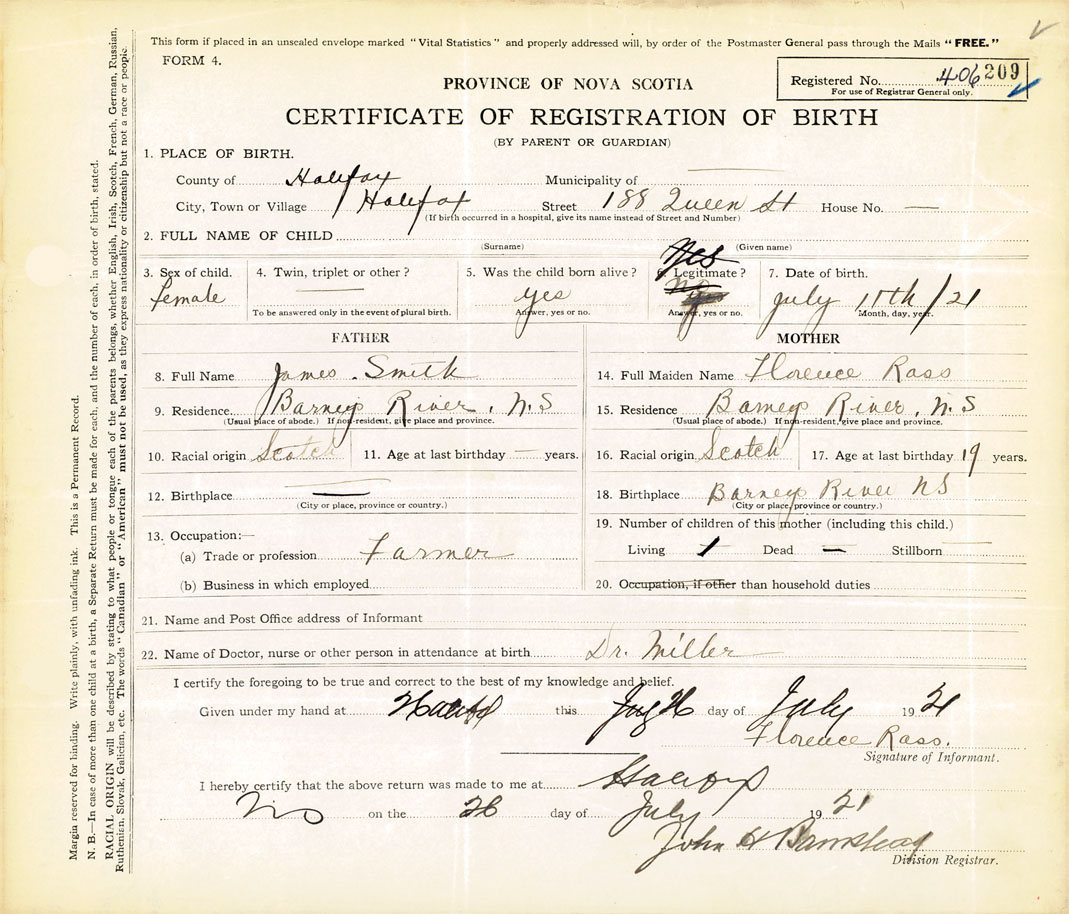 This form if placed in an unsealed envelope marked "Vital Statistics" and properly addressed will, by order of the Postmaster General pass through the Mails "FREE."
FORM 4.
PROVINCE OF NOVA SCOTIA
Registered No. 406 209
For use of Registrar General only.
CERTIFICATE OF REGISTRATION OF BIRTH
(BY PARENT OR GUARDIAN)
1. PLACE OF BIRTH.
County of Halifax Municipality of
City, Town or Village Halifax Street 188 Queen St House No. —
(If birth occurred in a hospital, give its name instead of Street and Number)
2. FULL NAME OF CHILD
(Surname) (Given name)
Yes
3. Sex of child. 4. Twin, triplet or other? 5. Was the child born alive? 6. Legitimate? 7. Date of birth.
female — yes July 11th /21
To be answered only in the event of plural birth. Answer, yes or no. Answer, yes or no. Month, day, year.
FATHER MOTHER
8. Full Name James Smith 14. Full Maiden Name Florence Ross
9. Residence Barneys River, N.S 15. Residence Barneys River, N.S
(Usual place of abode.) If non-resident, give place and province. (Usual place of abode.) If non-resident, give place and province.
10. Racial origin Scotch 11. Age at last birthday — years. 16. Racial origin Scotch 17. Age at last birthday 19 years.
12. Birthplace — 18. Birthplace Barneys River NS
(City or place, province or country.) (City or place, province or country.)
13. Occupation:— 19. Number of children of this mother (including this child.)
(a) Trade or profession Farmer Living 1 Dead — Stillborn —
(b) Business in which employed 20. Occupation, if other than household duties
21. Name and Post Office address of Informant
22. Name of Doctor, nurse or other person in attendance at birth Dr. Miller
I certify the foregoing to be true and correct to the best of my knowledge and belief.
Given under my hand at this day of July 1921
Florence Ross.
Signature of Informant.
I hereby certify that the above return was made to me at Halifax
NS on the 26 day of July 1921
John H Barnstead
Division Registrar.
Margin reserved for binding. Write plainly, with unfading ink. This is a Permanent Record.
N. B.—In case of more than one child at a birth, a Separate Return must be made for each, and the number of each, in order of birth, stated.
RACIAL ORIGIN will be described by stating to what people or tongue each of the parents belongs, whether English, Irish, Scotch, French, German, Russian,
Ruthenian, Slovak, Galician, etc. The words "Canadian" or "American" must not be used, as they express nationality or citizenship but not a race or people.